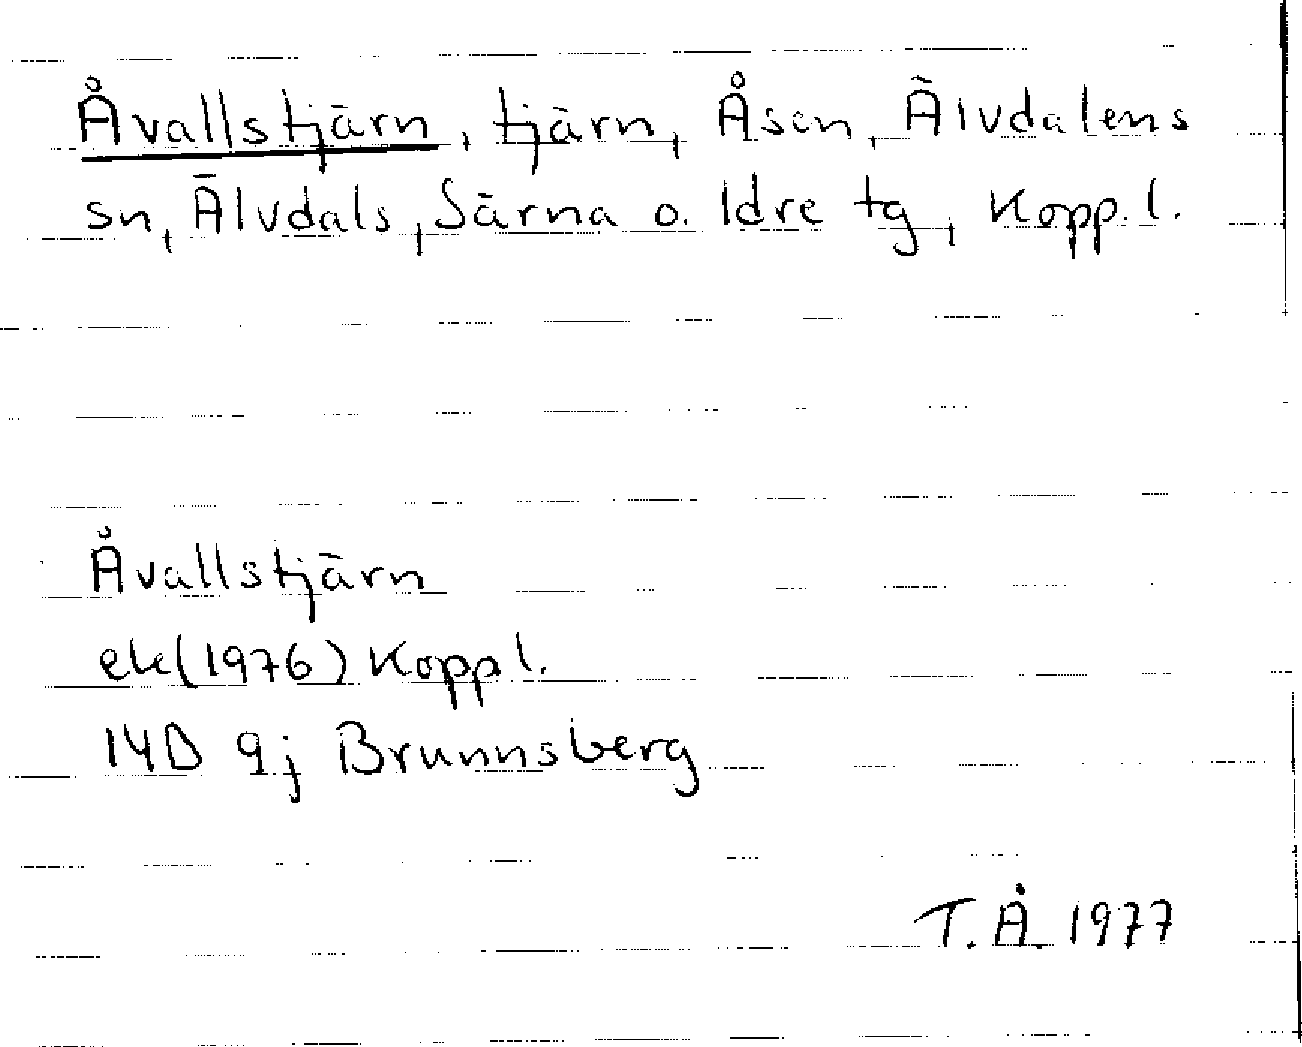 Åvallstjärn, tjärn, Åsen, Älvdalens
sn, Älvdals, Särna o. Idre tg, Kopp. l.
Åvallstjärn
ek (1976) Kopp l.
14D 9j Brunnsberg
T.Å. 1977